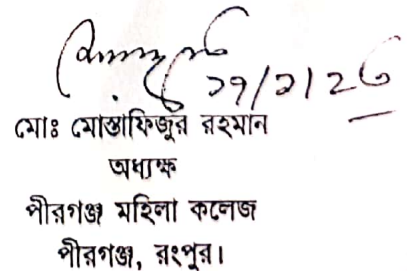 ২৭/১/২৬
মোঃ মোস্তাফিজুর রহমান
অধ্যক্ষ
পীরগঞ্জ মহিলা কলেজ
পীরগঞ্জ, রংপুর।